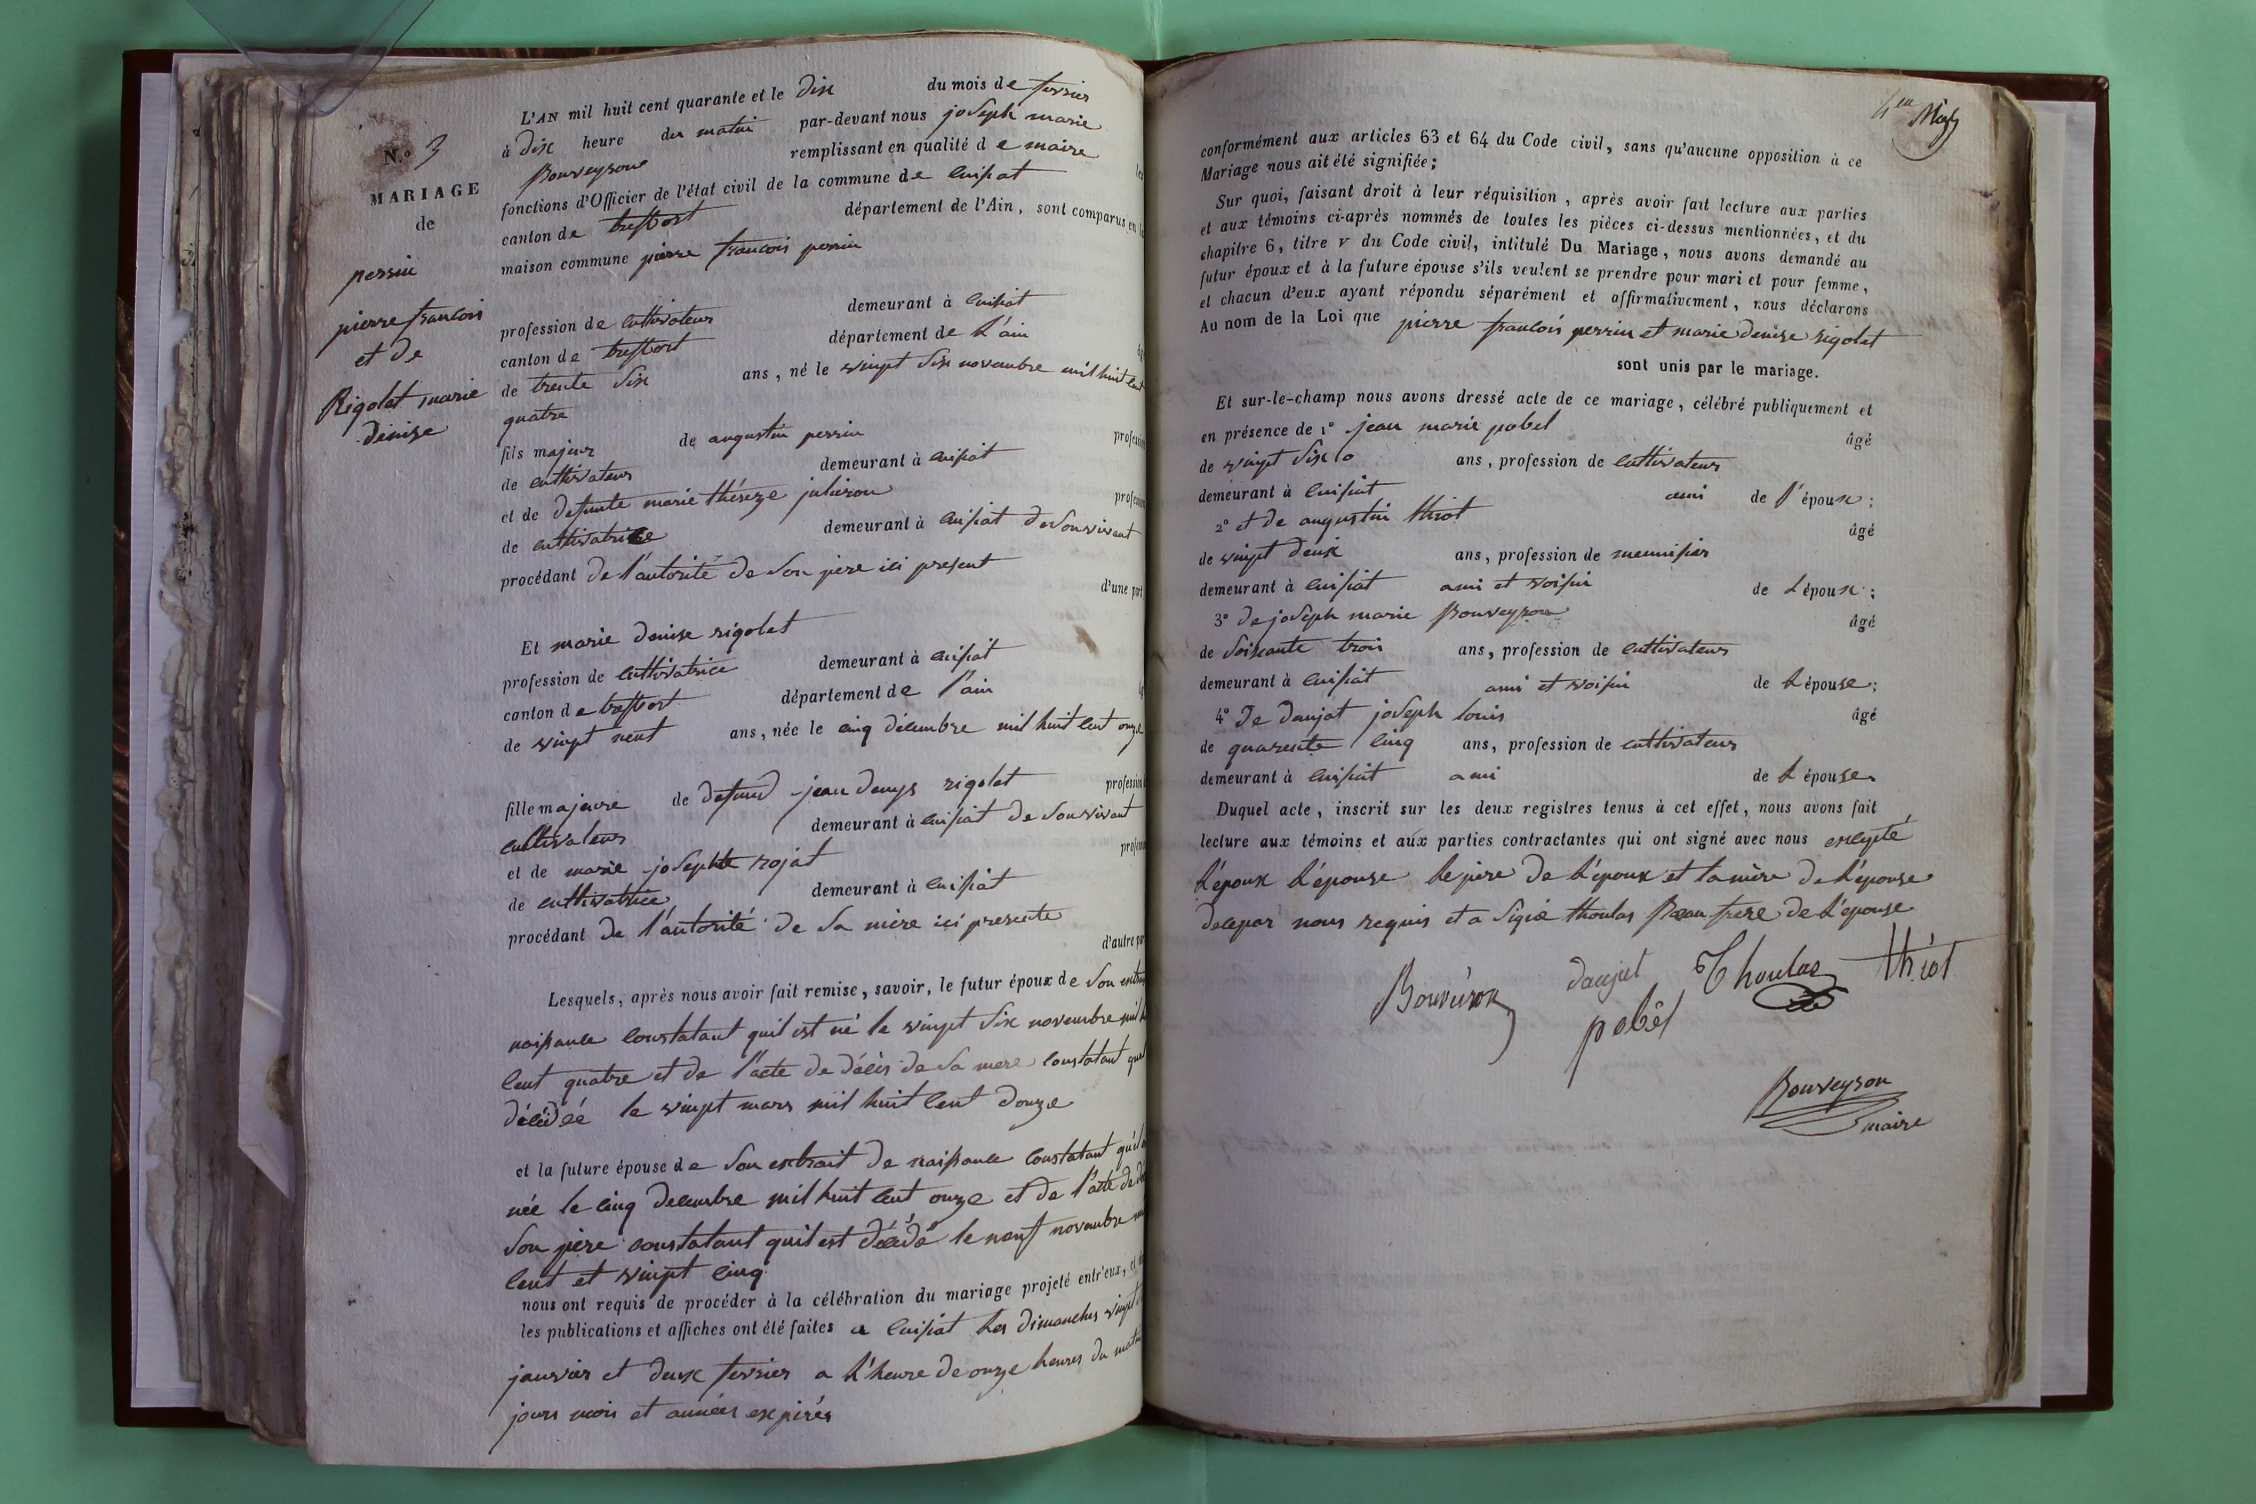 N.º 3
MARIAGE
de
perrin
pierre francois
et de
Rigolet marie
denize
L'AN mil huit cent quarante et le dix du mois de fevrier
à dix heure du matin par-devant nous joseph marie
Bouveyron remplissant en qualité de maire les
fonctions d'Officier de l'état civil de la commune de Cuisiat
canton de treffort département de l'Ain, sont comparus en la
maison commune pierre francois perrin
profession de cultivateur demeurant à Cuisiat
canton de treffort département de L'ain
de trente six ans, né le vingt six novembre mil huit cent
quatre
fils majeur de augustin perrin profession
de cultivateur demeurant à Cuisiat
et de defunte marie thérèze profession
de cultivatrice demeurant à Cuisiat de son vivant
procédant de l'autorité de son père ici present
d'une part
Et marie denise rigolet
profession de cultivatrice demeurant à Cuisiat
canton de treffort département de l'ain
de vingt neuf ans, née le cinq décembre mil huit cent onze
fille majeure de defund jean denys rigolet profession
cultivateur demeurant à Cuisiat de son vivant
et de marie josephte rojat profession
de cultivatrice demeurant à Cuisiat
procédant de l'autorité de sa mère ici presente
d'autre part
Lesquels, après nous avoir fait remise, savoir, le futur époux de son
naissance constatant quil est né le vingt six novembre mil
cent quatre et de l'acte de décès de sa mere constatant
décédée le vingt mars mil huit cent douze
et la future épouse de son extrait de naissance constatant
née le cinq decembre mil huit cent onze et de l'acte de
son père constatant quil est décédé le neuf novembre
cent et vingt cinq
nous ont requis de procéder à la célébration du mariage projeté entr'eux,
les publications et affiches ont été faites a Cuisiat les dimanches vingt
janvier et deux fevrier a L'heure de onze heures du matin
jours mois et années expirés
conformément aux articles 63 et 64 du Code civil, sans qu'aucune opposition à ce
Mariage nous ait été signifiée;
Sur quoi, faisant droit à leur réquisition, après avoir fait lecture aux parties
et aux témoins ci-après nommés de toutes les pièces ci-dessus mentionnées, et du
chapitre 6, titre V du Code civil, intitulé Du Mariage, nous avons demandé au
futur époux et à la future épouse s'ils veulent se prendre pour mari et pour femme,
et chacun d'eux ayant répondu séparément et affirmativement, nous déclarons
Au nom de la Loi que pierre francois perrin et marie denise rigolet
sont unis par le mariage.
Et sur-le-champ nous avons dressé acte de ce mariage, célébré publiquement et
en présence de 1º jean marie pobel âgé
de vingt six ans, profession de cultivateur
demeurant à Cuisiat ami de l'époux;
2º et de augustin thiot âgé
de vingt deux ans, profession de menuisier
demeurant à Cuisiat ami et voisin de L'époux;
3º de joseph marie Bouveyron âgé
de soixante trois ans, profession de cultivateur
demeurant à Cuisiat ami et voisin de L'épouse;
4º de daujat joseph louis âgé
de quarente cinq ans, profession de cultivateur
demeurant à Cuisiat ami de L'épouse.
Duquel acte, inscrit sur les deux registres tenus à cet effet, nous avons fait
lecture aux témoins et aux parties contractantes qui ont signé avec nous excepté
L'époux L'épouse le père de L'époux et la mère de L'épouse
de ce par nous requis et a signé thoulas Beau frere de L'épouse
Bouveiron daujat Thoulas thiot
pobel
Bouveyron
maire